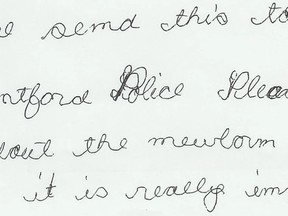 e send this to
ntford Police Plea
bout the newborn
it is really im